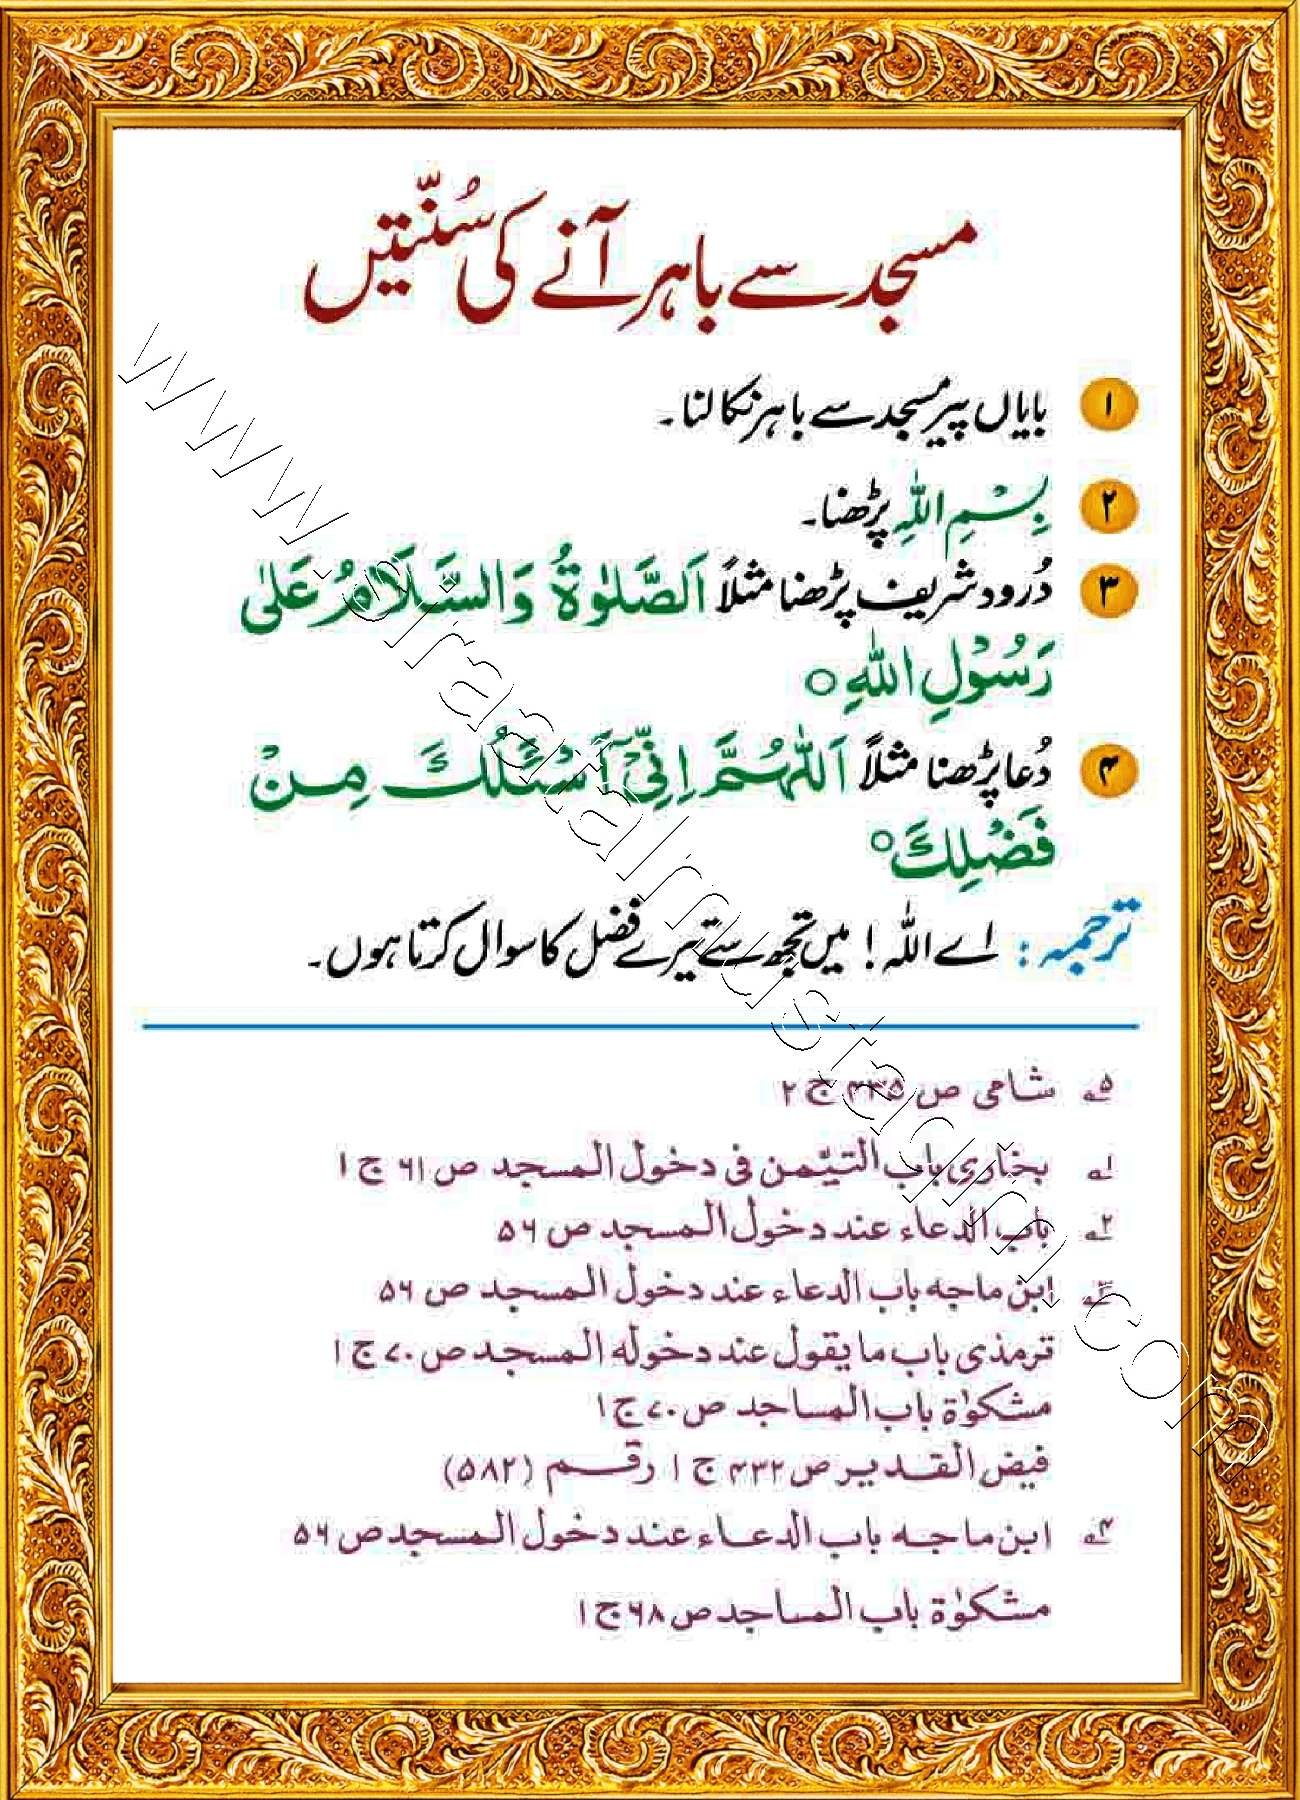 مسجد سے باہر آنے کی سُنّتیں
۱ بایاں پیر مسجد سے باہر نکالنا۔
۲ بِسْمِ اللّٰهِ پڑھنا۔
۳ دُرود شریف پڑھنا مثلاً اَلصَّلٰوةُ وَالسَّلَامُ عَلٰى
رَسُوْلِ اللّٰهِ ○
۴ دُعا پڑھنا مثلاً اَللّٰهُمَّ اِنِّيْٓ اَسْئَلُكَ مِنْ
فَضْلِكَ ○
ترجمہ : اے اللہ! میں تجھ سے تیرے فضل کا سوال کرتا ہوں۔
۵ شامی ص ۴۳۵ ج ۲
۱ بخاری باب التیّمن فی دخول المسجد ص ۶۱ ج ۱
۲ باب الدعاء عند دخول المسجد ص ۵۶
۳ ابن ماجه باب الدعاء عند دخول المسجد ص ۵۶
ترمذی باب ما یقول عند دخوله المسجد ص ۷۰ ج ۱
مشکوٰة باب المساجد ص ۷۰ ج ۱
فیض القدیر ص ۴۳۲ ج ۱ رقم (۵۸۲)
۴ ابن ماجه باب الدعاء عند دخول المسجد ص ۵۶
مشکوٰة باب المساجد ص ۶۸ ج ۱
www.siraatalmustaqim.com